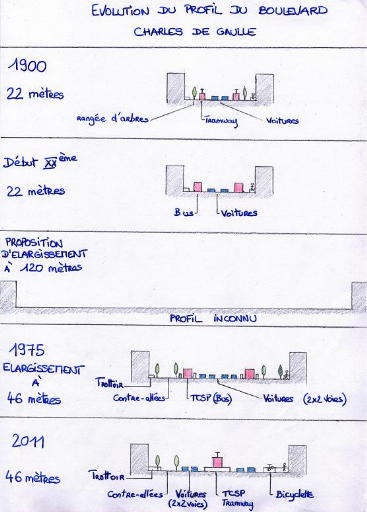 EVOLUTION DU PROFIL DU BOULEVARD
CHARLES DE GAULLE
1900
22 mètres
rangée d'arbres
Tramway
Voitures
Début XXème
22 mètres
Bus
Voitures
PROPOSITION
D'ELARGISSEMENT
À 120 mètres
PROFIL INCONNU
1975
ELARGISSEMENT
À
46 mètres
Trottoir
Contre-allées
TCSP (Bus)
Voitures (2x2 voies)
2011
46 mètres
Trottoir
Contre-allées
Voitures
(2x2 voies)
TCSP
Tramway
Bicyclette